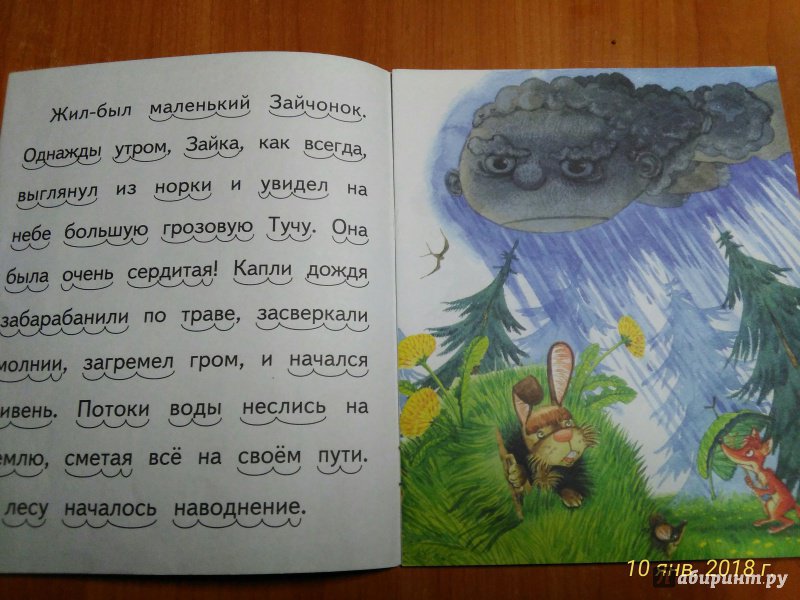 Жил-был маленький Зайчонок.
Однажды утром, Зайка, как всегда,
выглянул из норки и увидел на
небе большую грозовую Тучу. Она
была очень сердитая! Капли дождя
забарабанили по траве, засверкали
молнии, загремел гром, и начался
ивень. Потоки воды неслись на
емлю, сметая всё на своём пути.
лесу началось наводнение.
10 янв. 2018 г.
Лабиринт.ру